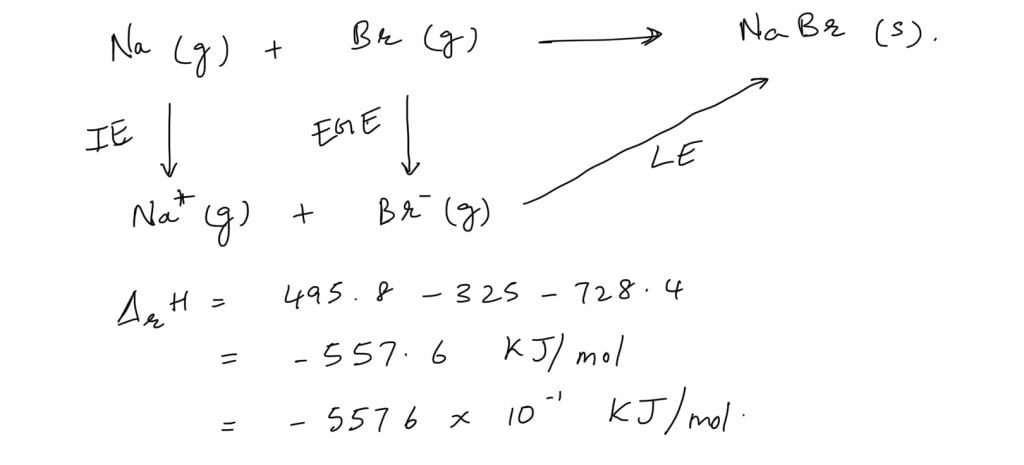 Na (g) + Br (g) ⟶ NaBr (s).
IE ↓ EGE ↓ LE
Na⁺ (g) + Br⁻ (g)
ΔrH = 495.8 - 325 - 728.4
= - 557.6 KJ/mol
= - 5576 x 10⁻¹ KJ/mol.